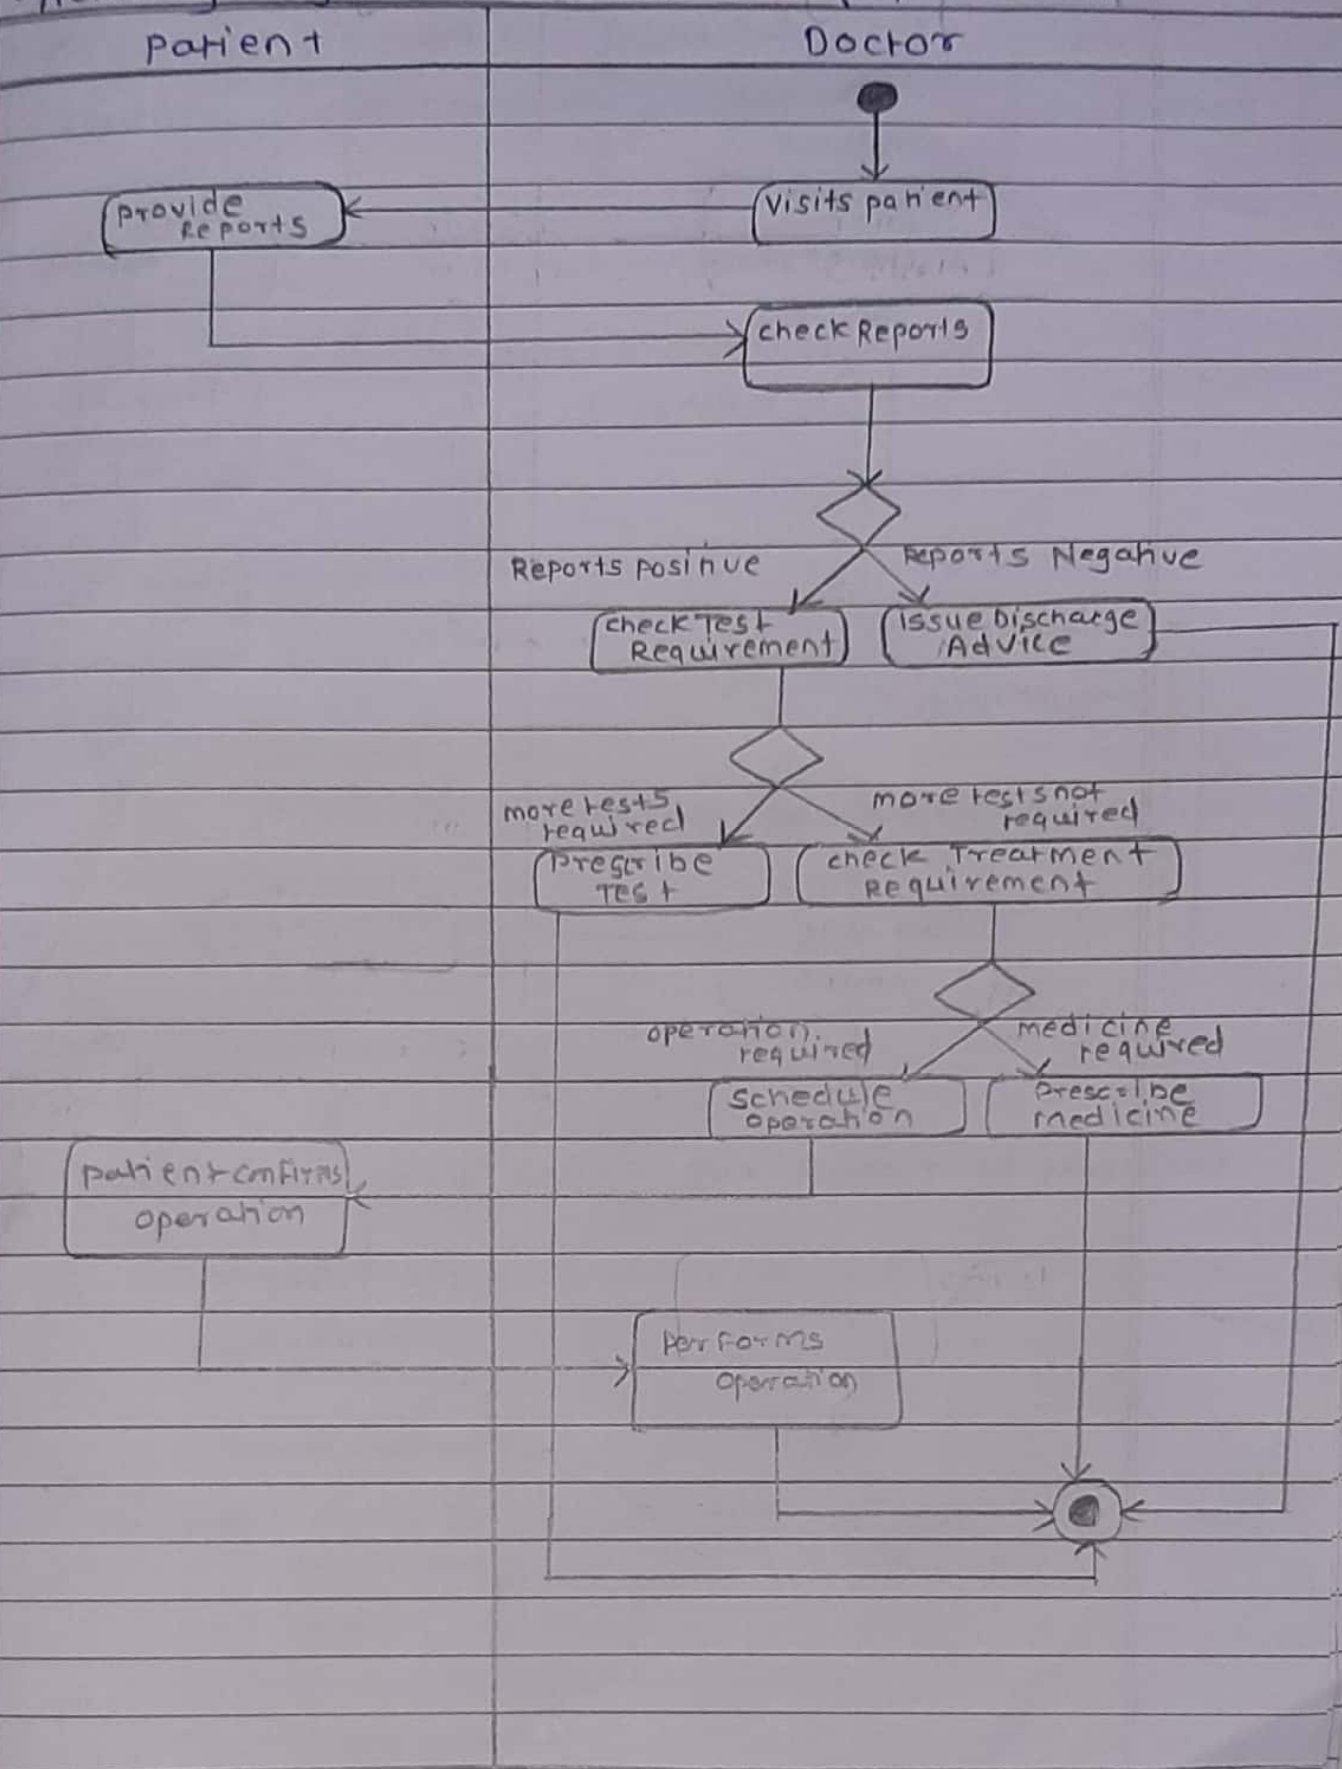 Patient
Doctor
Visits patient
Provide
Reports
check Reports
Reports positive
Reports Negative
check Test
Requirement
Issue Discharge
Advice
more tests
required
more tests not
required
Prescribe
Test
check Treatment
Requirement
operation
required
medicine
required
Schedule
operation
Prescribe
medicine
patient confirms
operation
Performs
operation